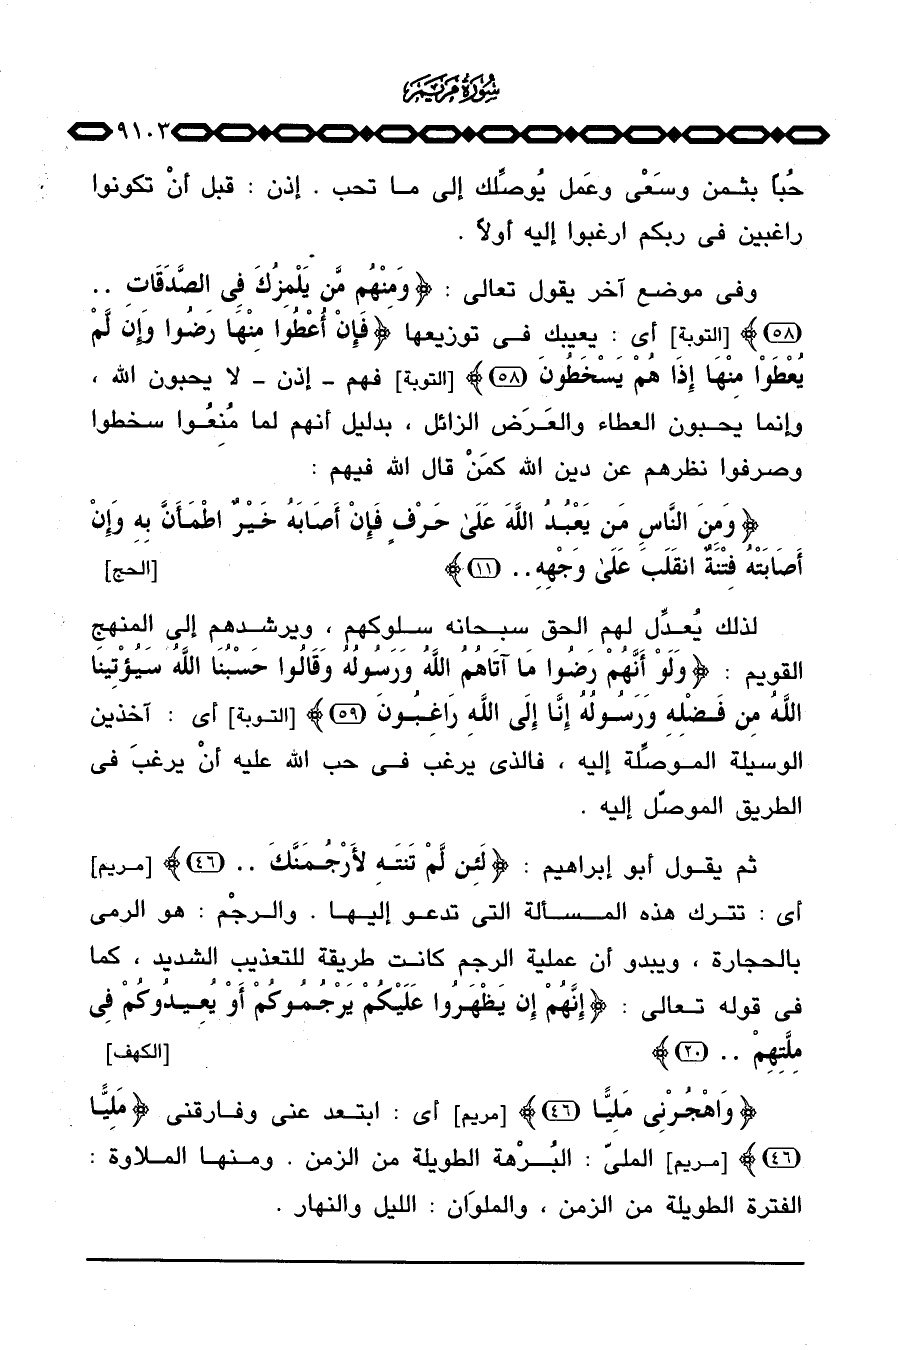 سورة مريم
٩١٠٣
حُباً بثمن وسَعْى وعَمل يُوصلِّك إلى ما تحب . إذن : قبل أنْ تكونوا
راغبين فى ربكم ارغبوا إليه أولاً .
وفى موضع آخر يقول تعالى : ﴿ وَمِنْهُم مَّن يَلْمِزُكَ فِى الصَّدَقَاتِ ..
(٥٨) ﴾ [التوبة] أى : يعيبك فى توزيعها ﴿ فَإِنْ أُعْطُوا مِنْهَا رَضُوا وَإِن لَّمْ
يُعْطَوْا مِنْهَا إِذَا هُمْ يَسْخَطُونَ (٥٨) ﴾ [التوبة] فهم - إذن - لا يحبون الله ،
وإنما يحبون العطاء والعَرَض الزائل ، بدليل أنهم لما مُنعُوا سخطوا
وصرفوا نظرهم عن دين الله كمَنْ قال الله فيهم :
﴿ وَمِنَ النَّاسِ مَن يَعْبُدُ اللَّهَ عَلَىٰ حَرْفٍ فَإِنْ أَصَابَهُ خَيْرٌ اطْمَأَنَّ بِهِ وَإِنْ
أَصَابَتْهُ فِتْنَةٌ انقَلَبَ عَلَىٰ وَجْهِهِ .. (١١) ﴾ [الحج]
لذلك يُعدِّل لهم الحق سبحانه سلوكهم ، ويرشدهم إلى المنهج
القويم : ﴿ وَلَوْ أَنَّهُمْ رَضُوا مَا آتَاهُمُ اللَّهُ وَرَسُولُهُ وَقَالُوا حَسْبُنَا اللَّهُ سَيُؤْتِينَا
اللَّهُ مِن فَضْلِهِ وَرَسُولُهُ إِنَّا إِلَى اللَّهِ رَاغِبُونَ (٥٩) ﴾ [التوبة] أى : آخذين
الوسيلة الموصِّلة إليه ، فالذى يرغب فى حب الله عليه أنْ يرغبَ فى
الطريق الموصِّل إليه .
ثم يقول أبو إبراهيم : ﴿ لَئِن لَّمْ تَنتَهِ لأَرْجُمَنَّكَ .. (٤٦) ﴾ [مريم]
أى : تترك هذه المسألة التى تدعو إليها . والرجْم : هو الرمى
بالحجارة ، ويبدو أن عملية الرجم كانت طريقة للتعذيب الشديد ، كما
فى قوله تعالى : ﴿ إِنَّهُمْ إِن يَظْهَرُوا عَلَيْكُمْ يَرْجُمُوكُمْ أَوْ يُعِيدُوكُمْ فِى
مِلَّتِهِمْ .. (٢٠) ﴾ [الكهف]
﴿ وَاهْجُرْنِى مَلِيًّا (٤٦) ﴾ [مريم] أى : ابتعد عنى وفارقنى ﴿ مَلِيًّا
(٤٦) ﴾ [مريم] الملىّ : البُرْهة الطويلة من الزمن . ومنها الملاوة :
الفترة الطويلة من الزمن ، والملوَان : الليل والنهار .